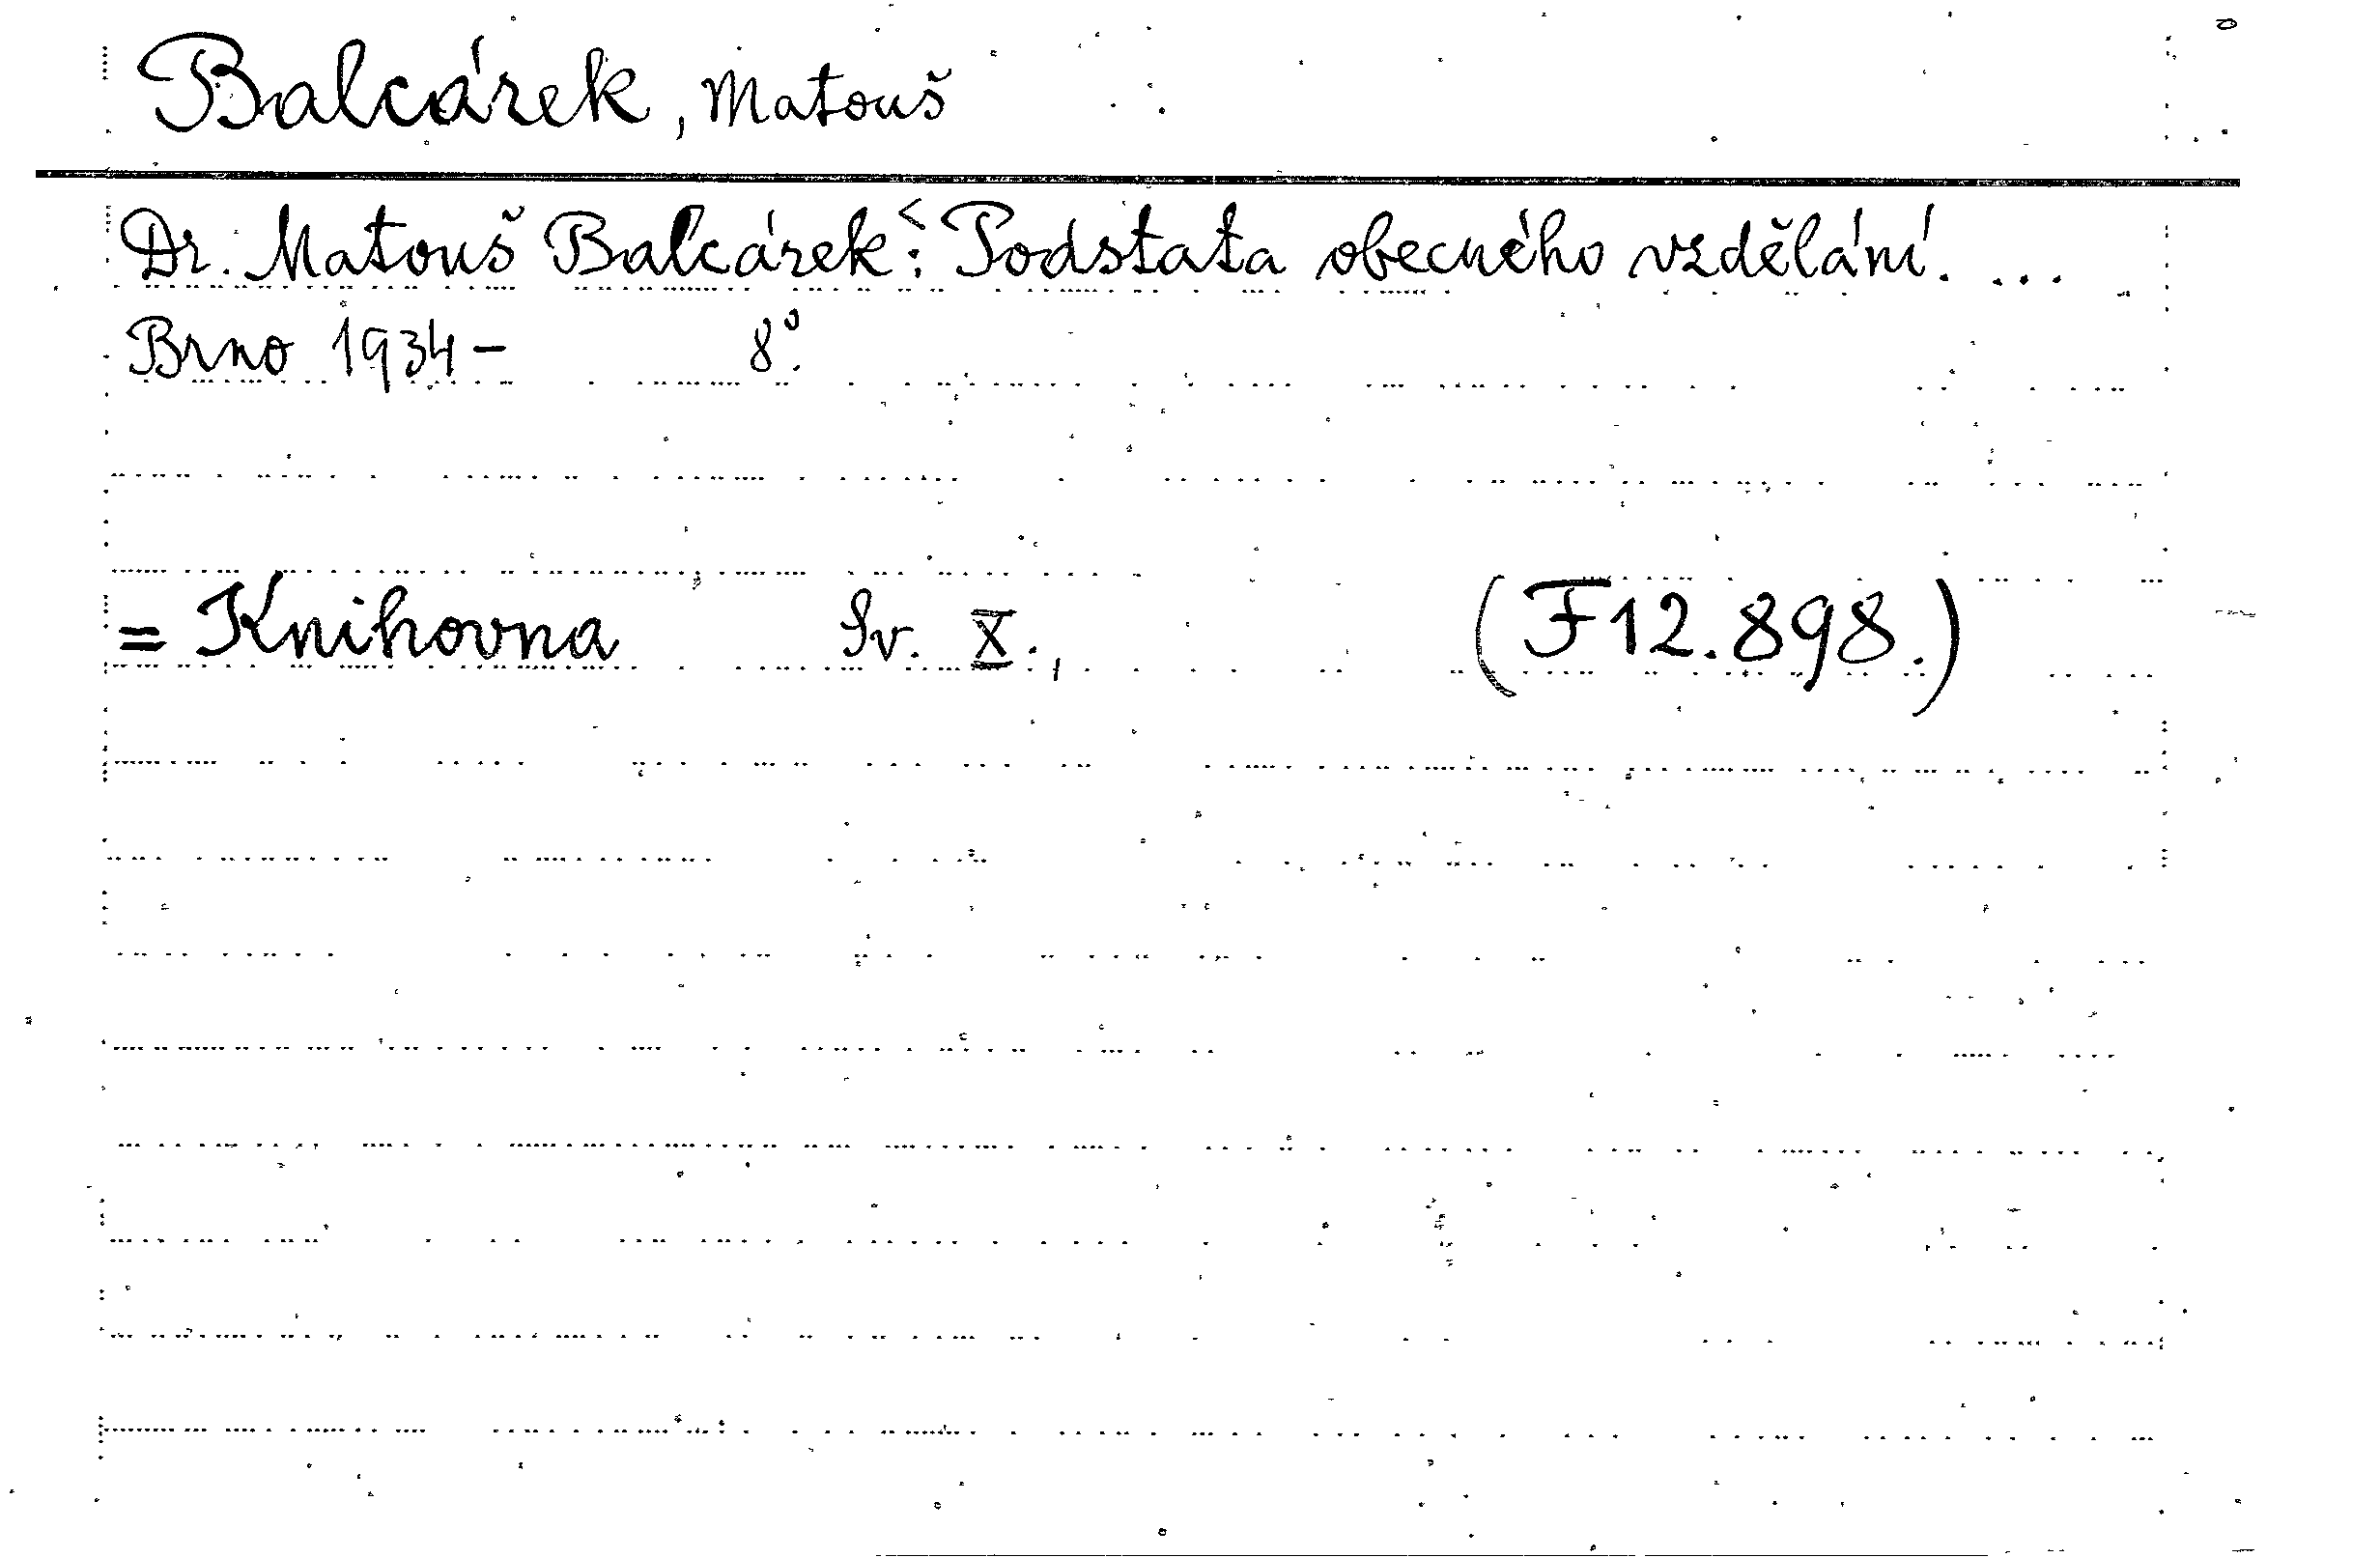 Balcárek, Matouš
Dr. Matouš Balcárek: Podstata obecného vzdělání. ...
Brno 1934 - 8°.
= Knihovna Sv. X., (F12.898.)